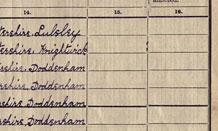 14. 15. 16.
tershire, Lulsley
tershire, Knightwick
rshire, Doddenham
rshire, Doddenham
rshire, Doddenham
rshire, Doddenham